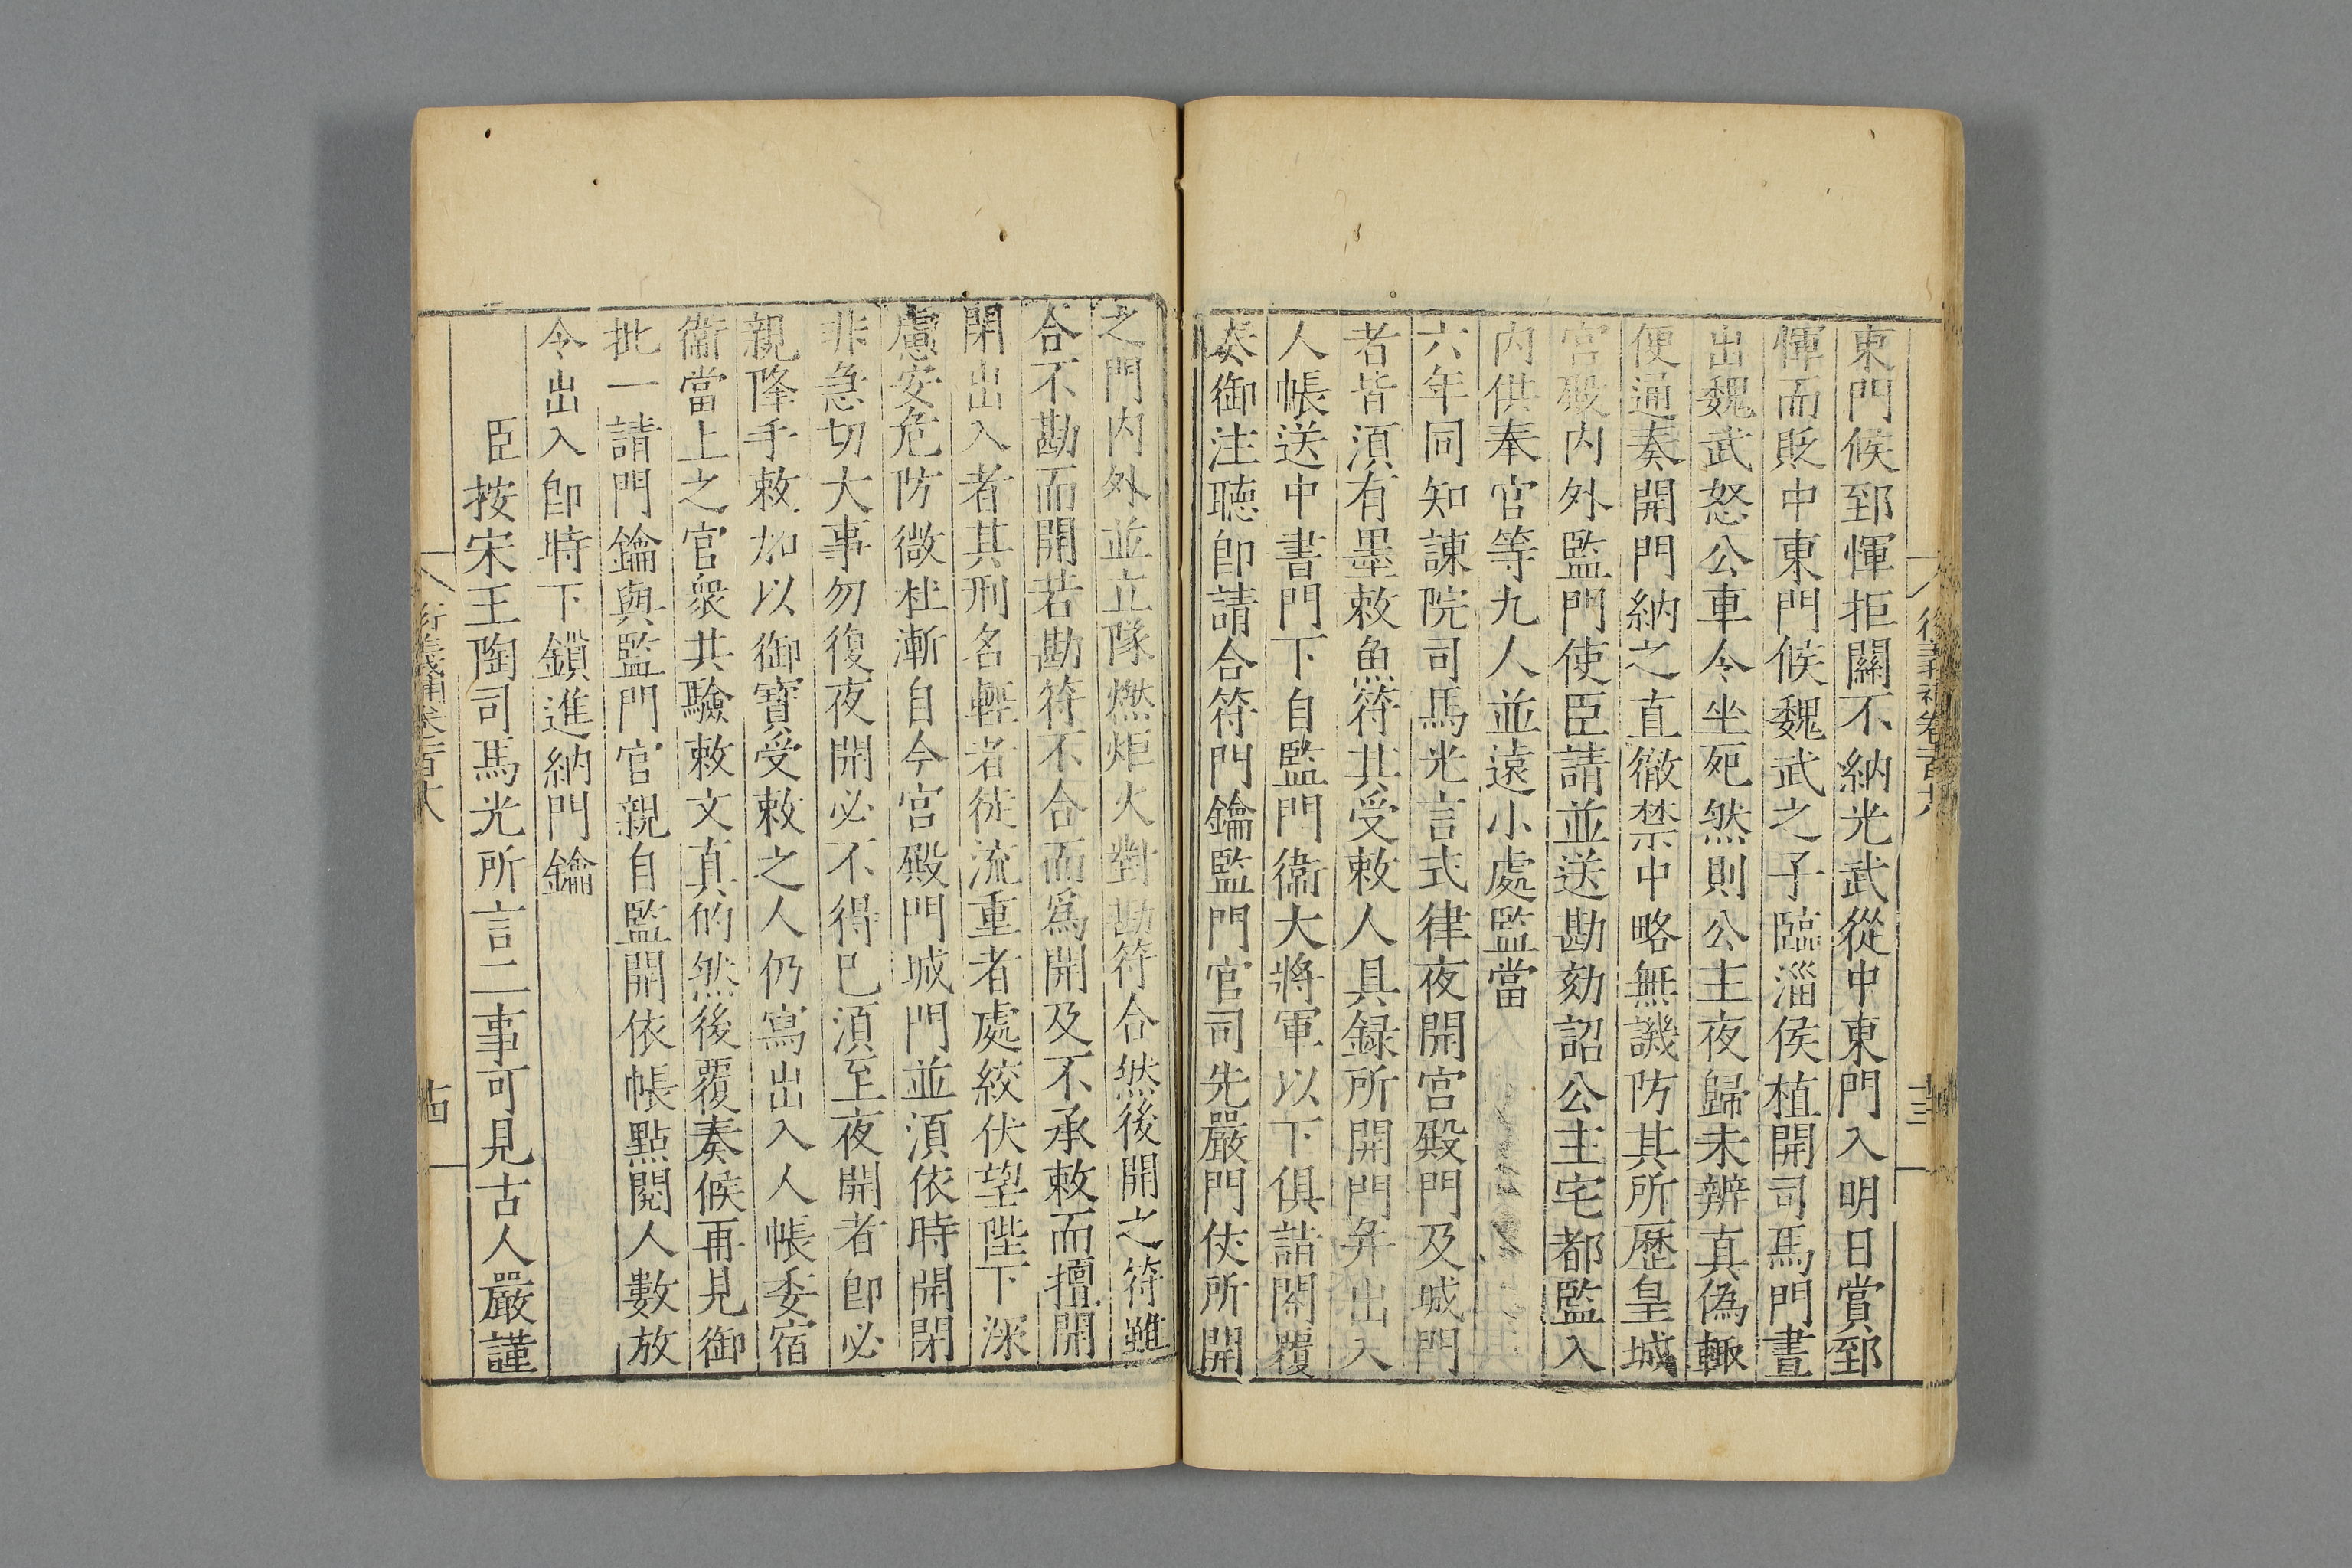 東門候郅惲拒關不納光武從中東門入明日賞郅
惲而貶中東門候魏武之子臨淄侯植開司馬門晝
出魏武怒公車令坐死然則公主夜歸未辨真偽輙
便通奏開門納之直徹禁中略無譏防其所歷皇城
宮殿內外監門使臣請並送勘劾詔公主宅都監入
內供奉官等九人並遠小處監當
六年同知諫院司馬光言式律夜開宮殿門及城門
者皆須有墨敕魚符其受敕人具録所開門并出入
人帳送中書門下自監門衞大將軍以下俱詣閤覆
奏御注聽卽請合符門鑰監門官司先嚴門仗所開
之門內外並立隊燃炬火對勘符合然後開之符雖
合不勘而開若勘符不合而爲開及不承敕而擅開
閉出入者其刑名輕者徒流重者處絞伏望陛下深
慮安危防微杜漸自今宮殿門城門並須依時開閉
非急切大事勿復夜開必不得已須至夜開者卽必
親降手敕加以御寶受敕之人仍寫出入人帳委宿
衞當上之官衆共驗敕文真的然後覆奏候再見御
批一請門鑰與監門官親自監開依帳點閱人數放
令出入卽時下鎖進納門鑰
臣按宋王陶司馬光所言二事可見古人嚴謹